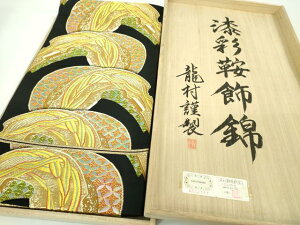 漆彩鞍飾錦
龍村謹製